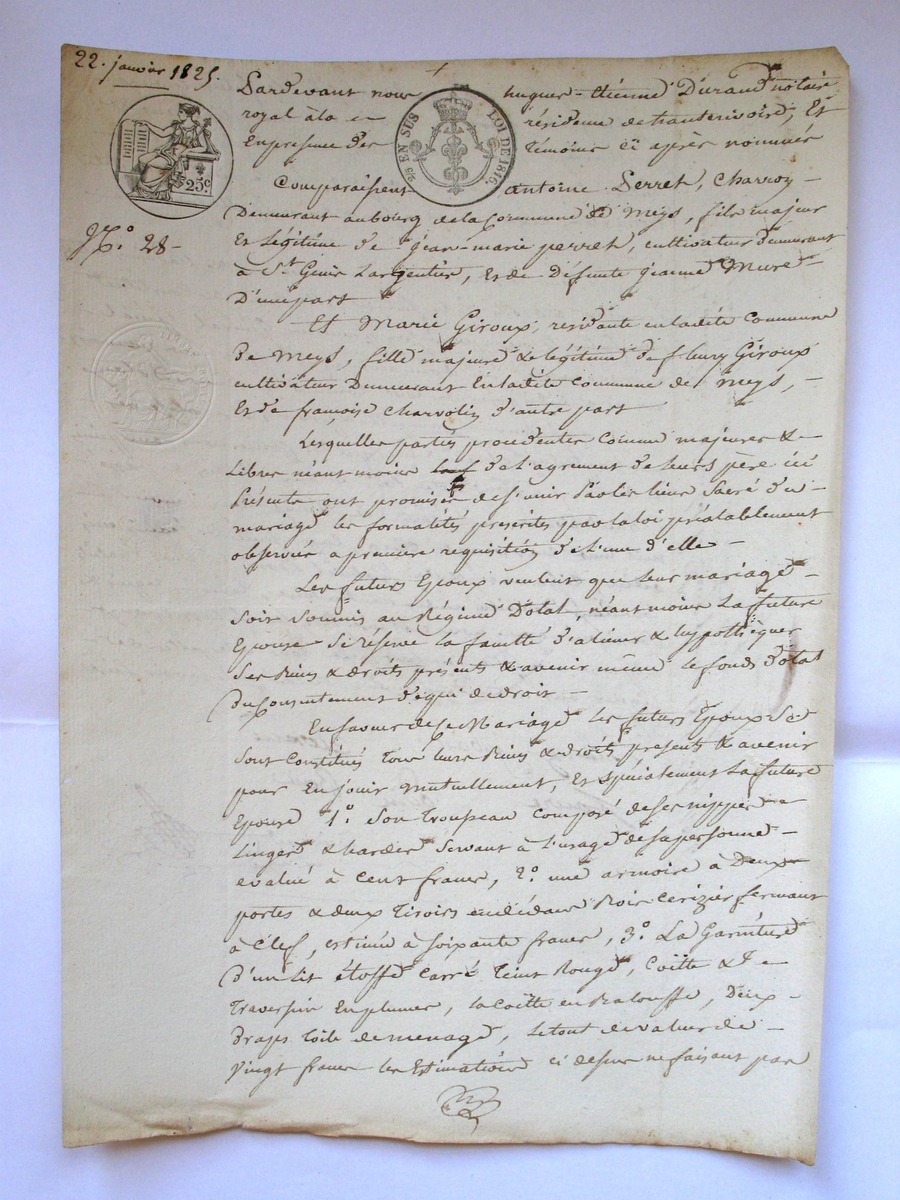 22. janvier 1825.
Pardevant nous hugues-étienne Durand notaire
royal à la résidence de et
En présence des témoins ci après nommés
25c.
EN SUS LOI DE 1816.
Comparaissent antoine Perret, Charron
Demeurant au bourg de la Commune de Meys, fils majeur
N.° 28-
Et Légitime de jean-marie perret, cultivateur demeurant
à St Genis Largentier, et de Défunte jeanne Mure
D'une part
Et Marie Giroux, residante en ladite Commune
De Meys, fille majeure & légitime de fleury Giroux
cultivateur Demeurant En ladite Commune de Meys, -
Et de françoise Charvolin d'autre part
Lesquelles parties procédentes comme majeures &
Libres néantmoins de l'agrément de leurs père ici
Présents ont promis de s'unir par les liens Sacré du
mariage les formalités prescrites par la loi préalablement
observées a première requisition de l'une d'elle -
Les futurs Epoux veulent que leur mariage -
Soit Soumis au Régime Dotal, néantmoins La future
Epouse Se réserve la faculté d'aliéner & hypothéquer
Ses Biens & droits présents & avenir même le fonds Dotal
Du Consentement de qui de droit -
En faveur de ce Mariage les futurs Epoux Se
Sont Constitués Tous leurs Biens & droits present & avenir
pour En jouir mutuellement, Et spécialement La future
Epouse 1.° Son Trousseau composé de ses nippes
Linges & hardes Servant à l'usage de sa personne -
evalué à cent francs, 2.° une armoire à Deux
portes & deux Tiroirs Bois Cerizier fermant
à Clef, estimée à soixante francs, 3.° La Garniture
D'un lit étoffe Carré Teint Rouge, Coëtte &
Traversin En plumes, la coëtte en Balouffe, Deux -
Draps Toile de menage, le tout de valeur de -
Vingt francs les Estimations ci dessus ne faisant pas